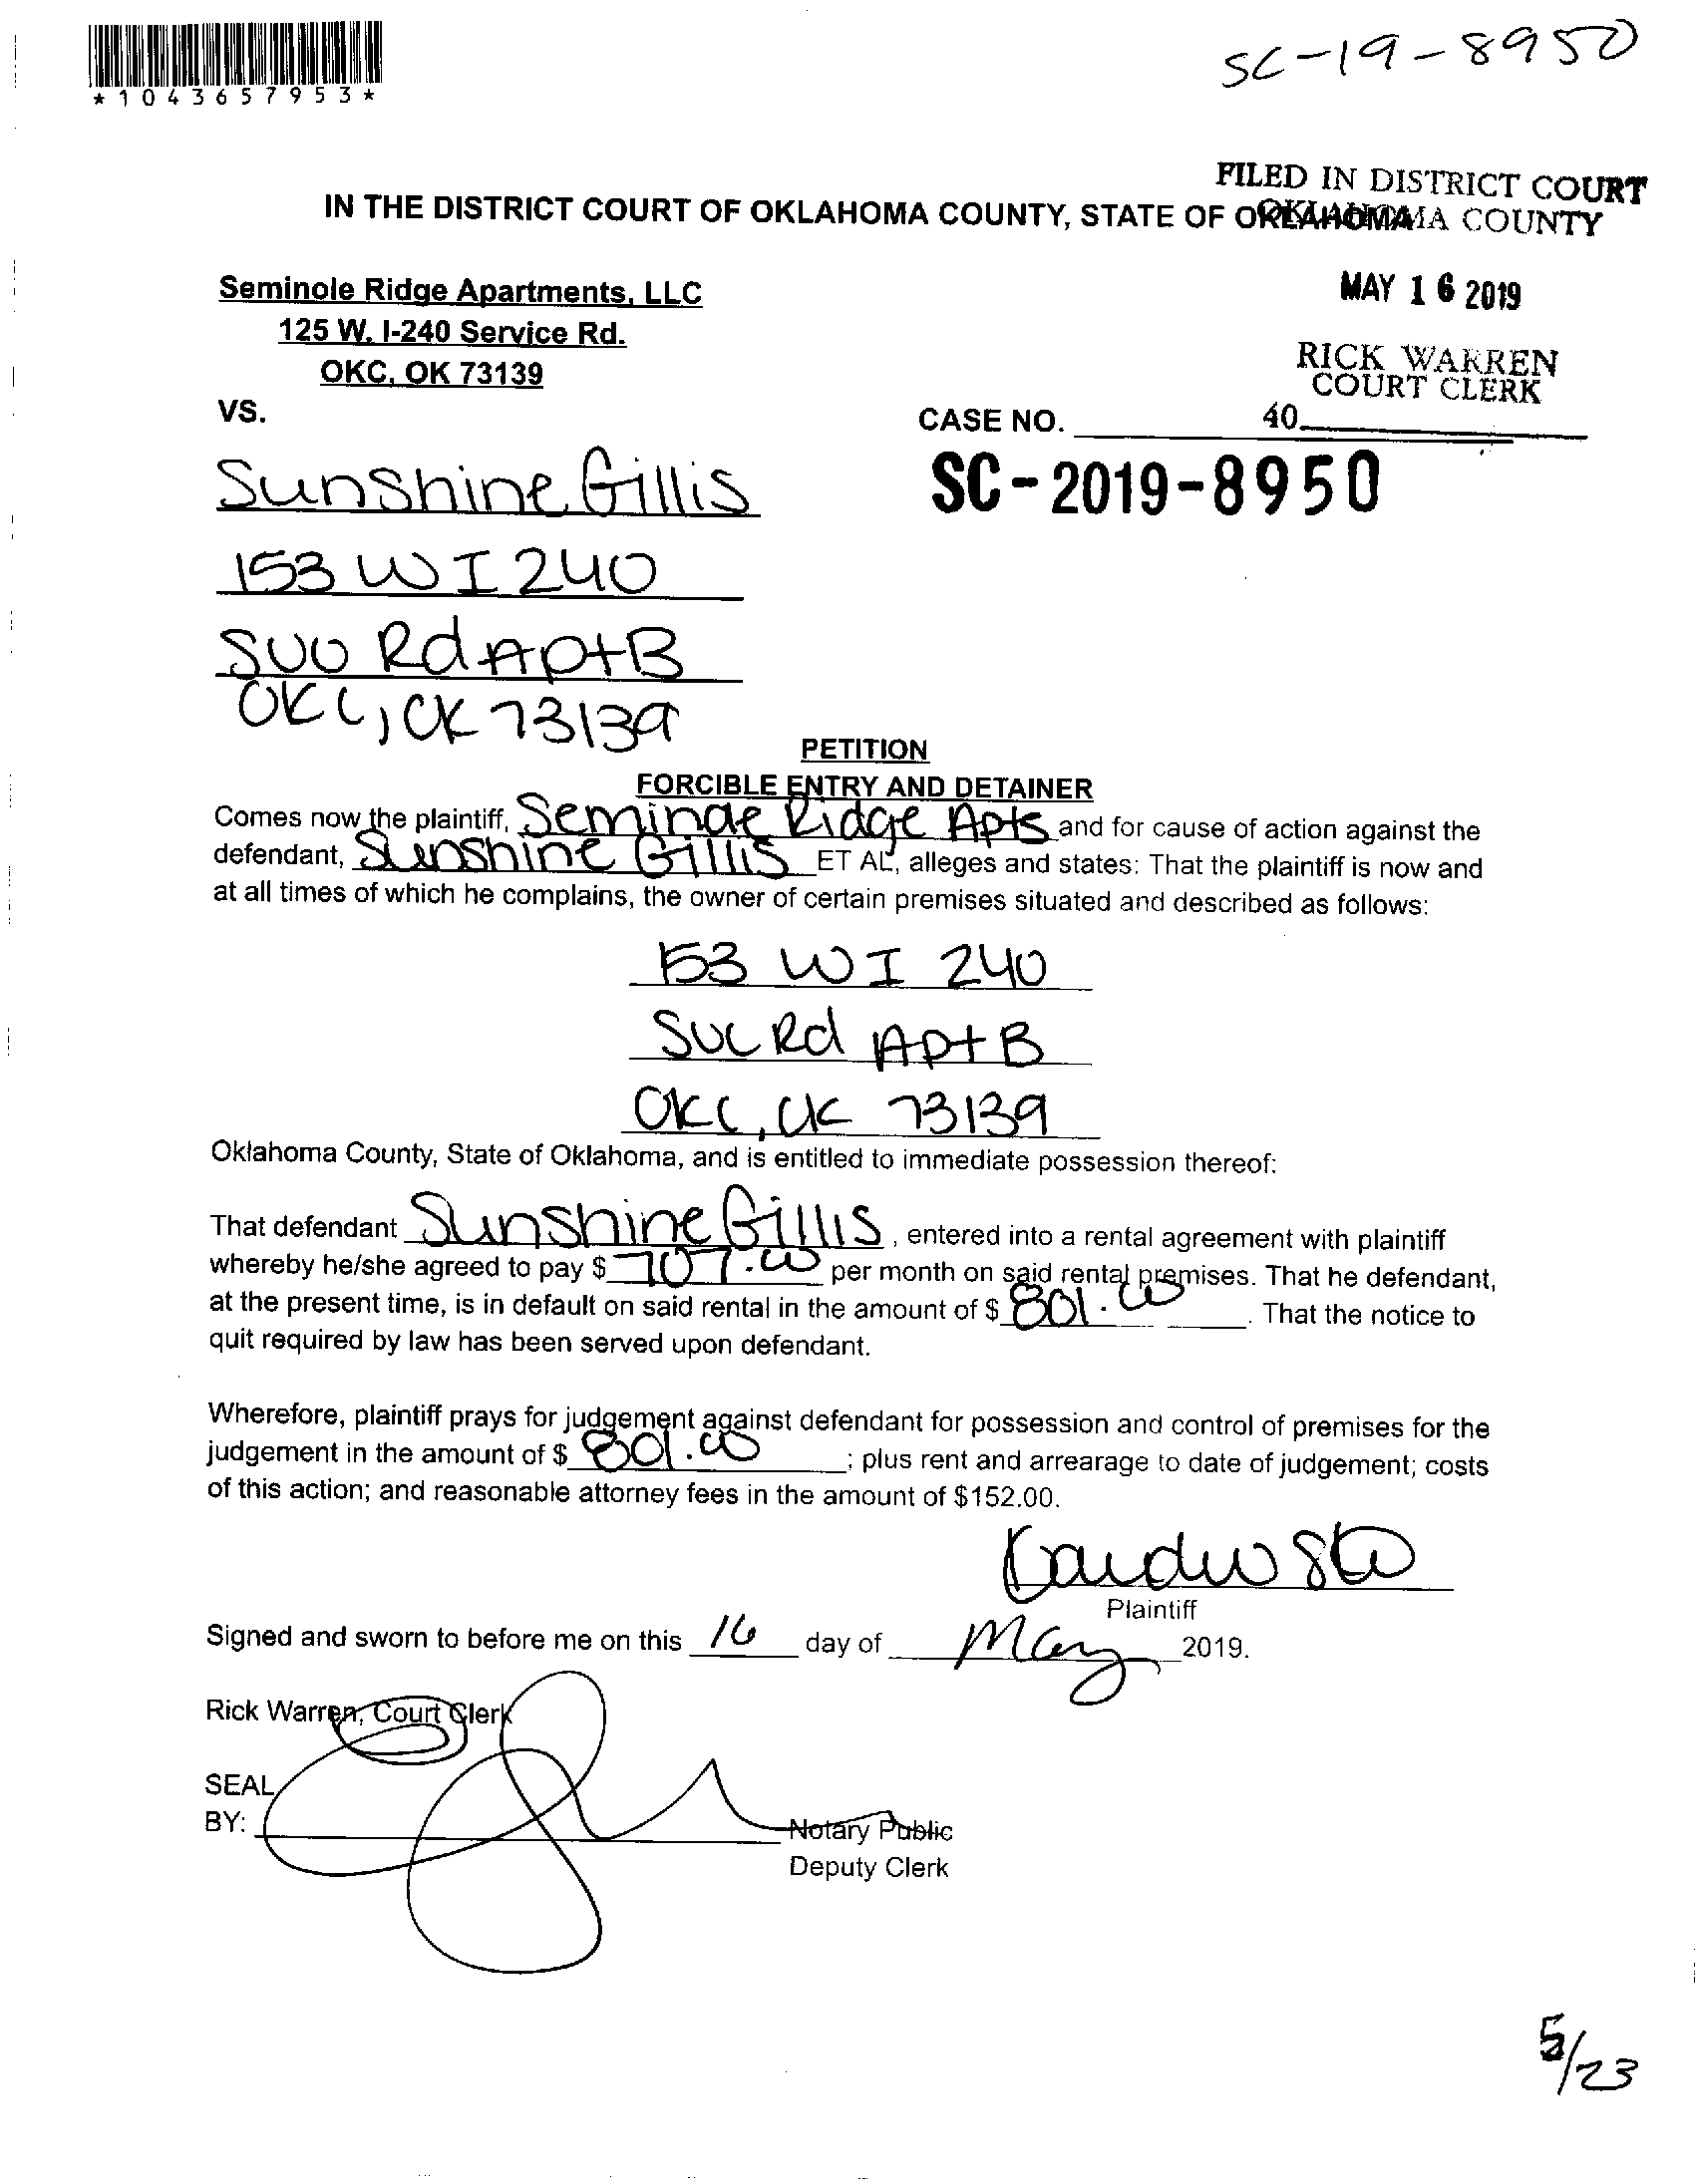 *1043657953*
SC-19-8950
FILED IN DISTRICT COURT
OKLAHOMA COUNTY
IN THE DISTRICT COURT OF OKLAHOMA COUNTY, STATE OF OKLAHOMA
Seminole Ridge Apartments, LLC
MAY 16 2019
125 W. I-240 Service Rd.
OKC, OK 73139
RICK WARREN
COURT CLERK
VS.
CASE NO. 40
Sunshine Gillis
SC-2019-8950
153 W I 240
SVC Rd Apt B
OKC, OK 73139
PETITION
FORCIBLE ENTRY AND DETAINER
Comes now the plaintiff, Seminole Ridge Apts and for cause of action against the
defendant, Sunshine Gillis ET AL, alleges and states: That the plaintiff is now and
at all times of which he complains, the owner of certain premises situated and described as follows:
153 W I 240
SVC Rd Apt B
OKC, OK 73139
Oklahoma County, State of Oklahoma, and is entitled to immediate possession thereof:
That defendant Sunshine Gillis, entered into a rental agreement with plaintiff
whereby he/she agreed to pay $ 707.00 per month on said rental premises. That he defendant,
at the present time, is in default on said rental in the amount of $ 801.00. That the notice to
quit required by law has been served upon defendant.
Wherefore, plaintiff prays for judgement against defendant for possession and control of premises for the
judgement in the amount of $ 801.00; plus rent and arrearage to date of judgement; costs
of this action; and reasonable attorney fees in the amount of $152.00.
Plaintiff
Signed and sworn to before me on this 16 day of May 2019.
Rick Warren, Court Clerk
SEAL
BY: Notary Public
Deputy Clerk
5/23